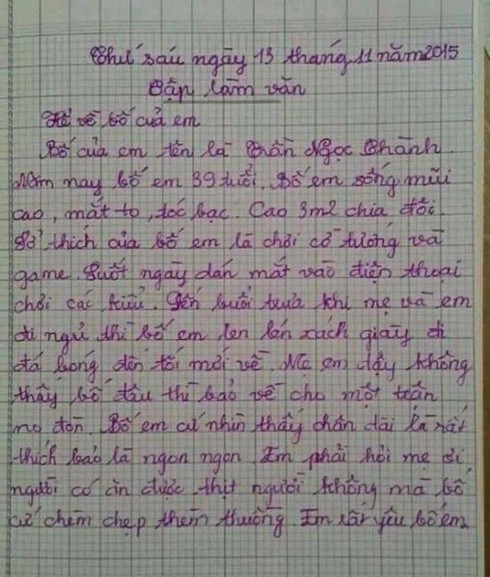 Thứ sáu ngày 13 tháng 11 năm 2015
Tập làm văn
Kể về bố của em
Bố của em tên là Trần Ngọc Thành.
Năm nay bố em 39 tuổi. Bố em sống mũi
cao, mắt to, tóc bạc. Cao 3m2 chia đôi.
Sở thích của bố em là chơi cờ tướng và
game. Suốt ngày dán mắt vào điện thoại
chơi các kiểu. Đến buổi trưa khi mẹ và em
đi ngủ thì bố em len lén xách giày đi
đá bóng đến tối mới về. Mẹ em dậy không
thấy bố đâu thì bảo về cho một trận
no đòn. Bố em cứ nhìn thấy chân dài là rất
thích bảo là ngon ngon. Em phải hỏi mẹ ơi
người có ăn được thịt người không mà bố
cứ chém chẹp thèm thuồng. Em rất yêu bố em.